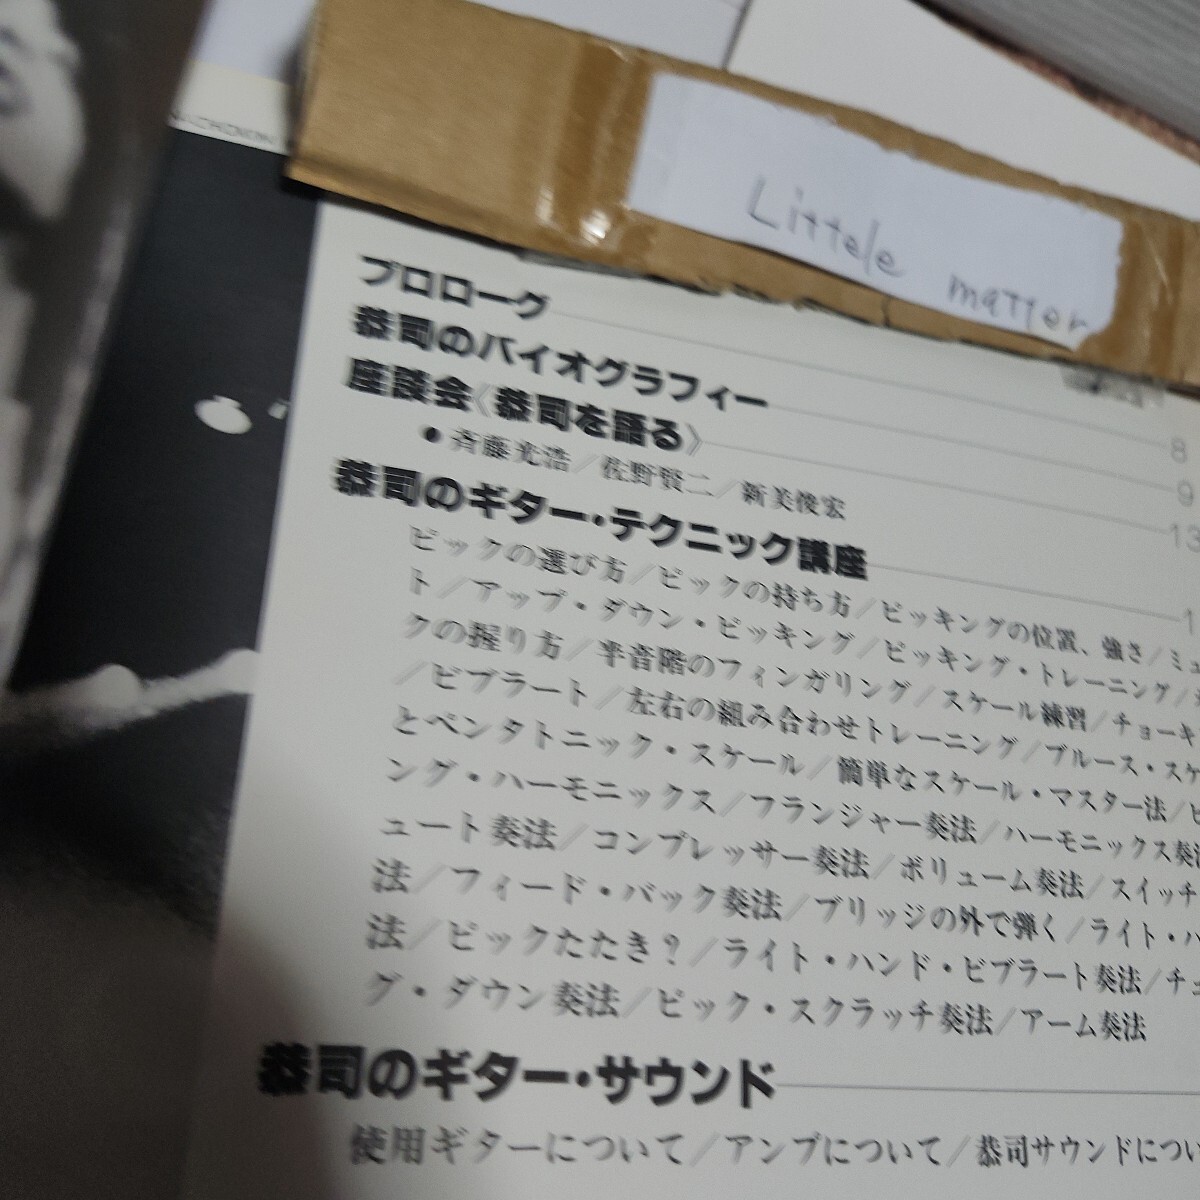 Littele matter
プロローグ 8
恭司のバイオグラフィー 9
座談会《恭司を語る》 13
●斉藤光浩／佐野賢二／新美俊宏
恭司のギター・テクニック講座 1
ピックの選び方／ピックの持ち方／ピッキングの位置、強さ／ミュ
ト／アップ・ダウン・ピッキング／ピッキング・トレーニング／
クの握り方／半音階のフィンガリング／スケール練習／チョーキ
／ビブラート／左右の組み合わせトレーニング／ブルース・スケ
とペンタトニック・スケール／簡単なスケール・マスター法／ピ
ング・ハーモニックス／フランジャー奏法／ハーモニックス奏法
ュート奏法／コンプレッサー奏法／ボリューム奏法／スイッチ
法／フィード・バック奏法／ブリッジの外で弾く／ライト・ハ
法／ピックたたき？／ライト・ハンド・ビブラート奏法／チュ
グ・ダウン奏法／ピック・スクラッチ奏法／アーム奏法
恭司のギター・サウンド
使用ギターについて／アンプについて／恭司サウンドについ